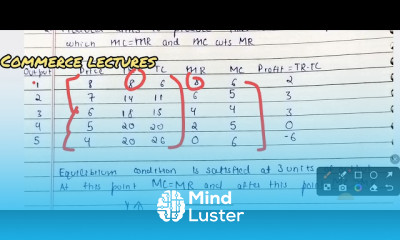 which MC=MR and MC cuts MR
Commerce lectures
Output Price TC MR MC Profit = TR-TC
1 8 8 6 8 6 2
2 7 14 11 6 5 3
3 6 18 15 4 4 3
4 5 20 20 2 5 0
5 4 20 26 0 6 -6
Equilibrium condition is satisfied at 3 units
At this point MC=MR and after this point
Mind
Luster